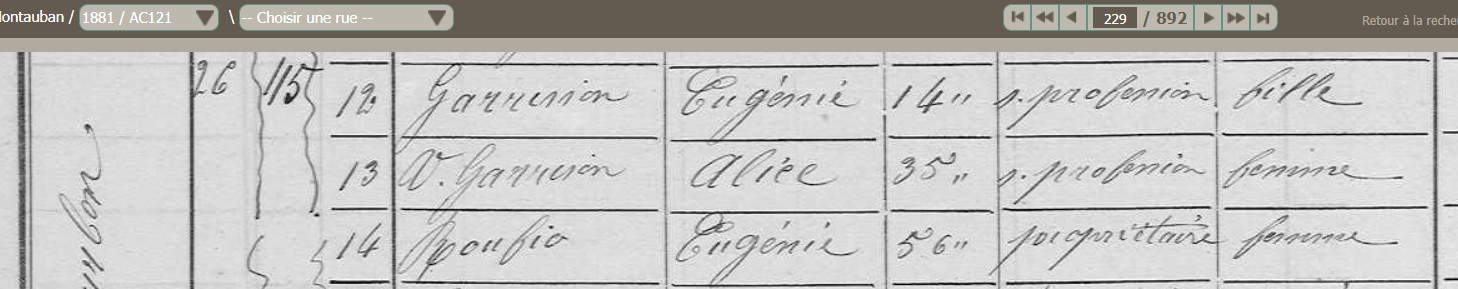 Montauban / 1881 / AC121 \ -- Choisir une rue -- 229 / 892 Retour à la reche
26 115 12 Garrision Eugénie 14 " s. profession fille
13 V. Garrision Alice 35 " s. profession femme
14 Roufio Eugénie 56 " propriétaire femme